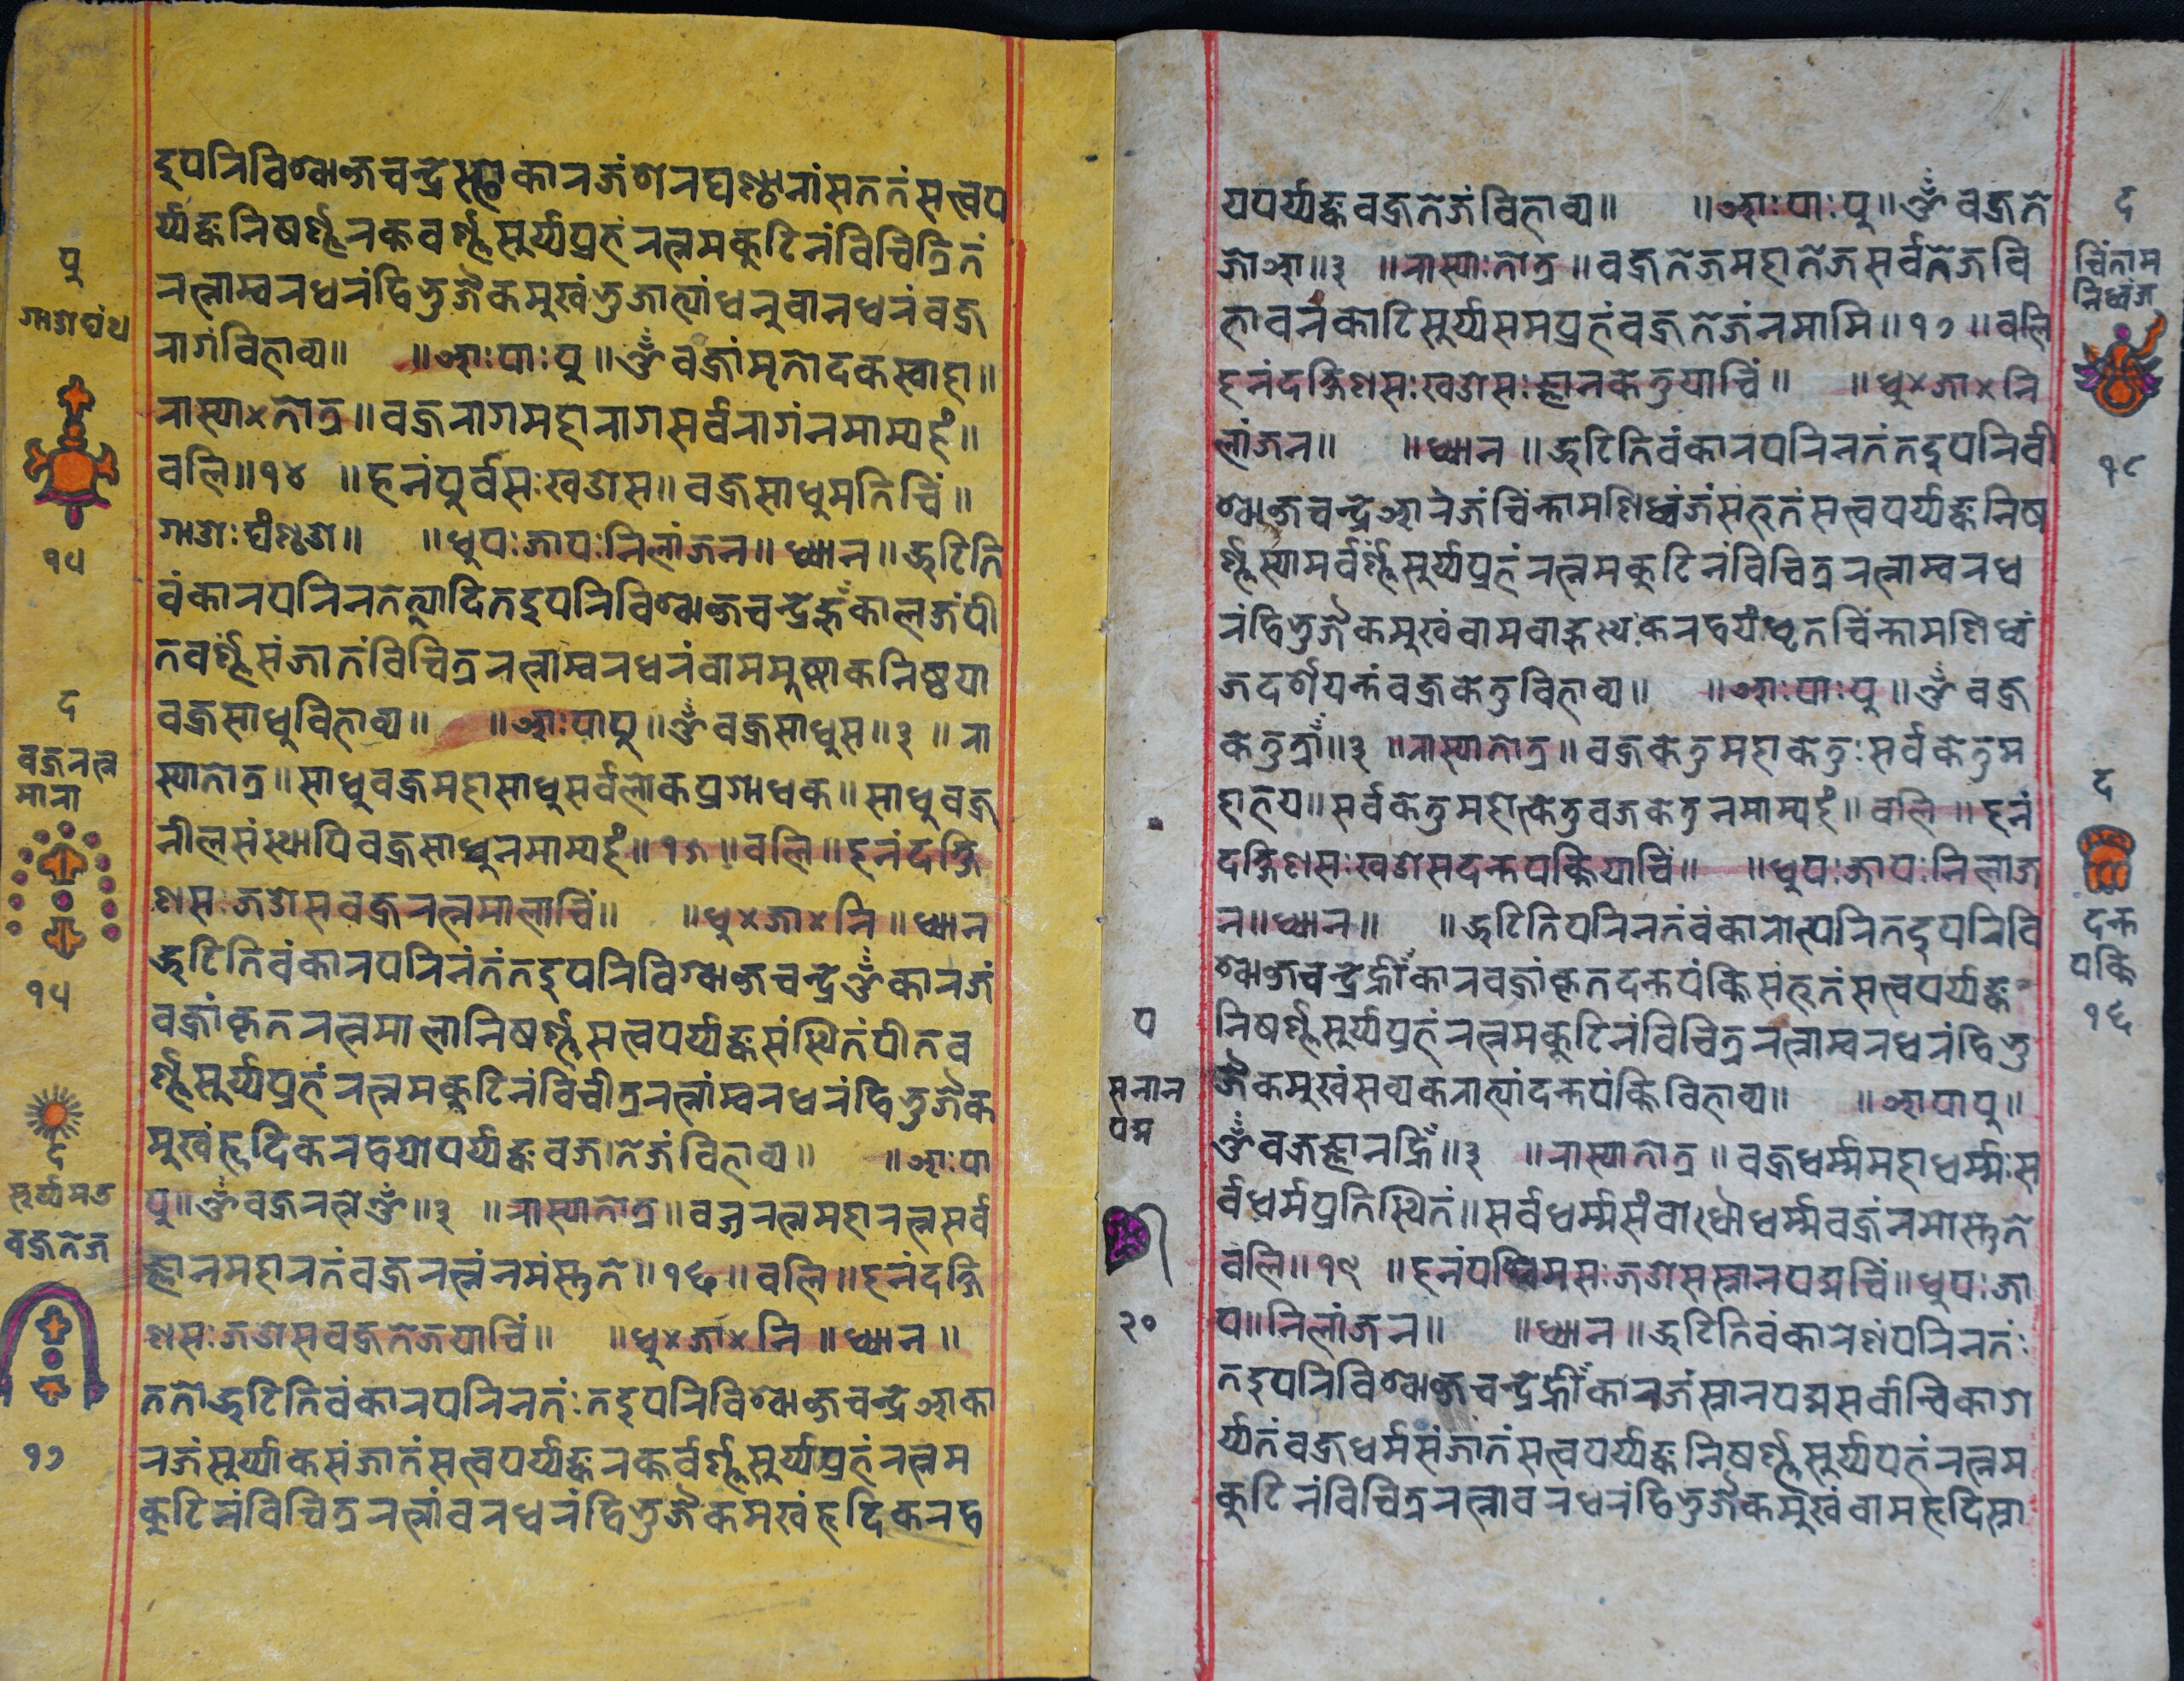 दुपरिविश्वाब्जचन्द्रे होकारजं शरघण्ठारां सततं सत्त्वप
र्य्यङ्कनिषर्ण्ण रक्तवर्ण्ण सुर्य्यप्रभं रत्नमकुटिनं विचित्रितं
रत्नाम्वरधरं द्विभुजैकमुखं भुजाभ्यां धनुवानधरं वज्र
रागं विभाव्य॥ ॥आःपाःपु॥ ॐ वज्रांमृतोदक स्वाहा॥
रास्या×तोत्र॥ वज्रराग महाराग सर्वरागं नमाम्यहं॥
वलि॥१४ ॥हनं पुर्वसः खडास॥ वज्रसाधुमति चिं॥
गाडाः घंण्ठडा॥ ॥धुपःजापःनिलांजन॥ ध्यान॥ झटिति
वंकारपरिनतेत्यादि तदुपरिविश्वाब्जचन्द्रे हूँकालजं पी
तवर्ण्णं संजातं विचित्ररत्नाम्वरधरं वाममुष्ठाकनिष्ठया
वज्रसाधु विभाव्य॥ ॥आःपापु॥ ॐ वज्रसाधु स॥३ ॥रा
स्यातोत्र॥ साधुवज्र महासाधु सर्वलोकप्रशोधक॥ साधुवज्र
नीलसंस्थापि वज्रसाधु नमाम्यहं॥१५॥वलि॥ हनं दक्षि
णसः जडास वज्ररत्नमाला चिं॥ ॥धु×जा×नि॥ध्यान
झटिति वंकारपरिनंतं तदुपरिविश्वाब्जचन्द्रे ॐकारजं
वज्रांकृत रत्नमाला निषर्ण्ण सत्त्वपर्य्यङ्कसंस्थितं पीतव
र्ण्ण सुर्य्यप्रभं रत्नमकुटिनं विचीत्ररत्नांम्वरधरं द्विभुजैक
मुखं हृदिकरद्वयोपर्य्यङ्क वज्रातेजं विभाव्य॥ ॥आःपा
पु॥ ॐ वज्ररत्ने ॐ॥३ ॥रास्यातोत्र॥ वज्ररत्न महारत्न सर्व
ज्ञानमहारतं वज्ररत्नं नमंस्तुते॥१६॥वलि॥ हनं दक्षि
णसः जडास वज्रतेजया चिं॥ ॥धु×जा×नि॥ध्यान॥
ततो झटिति वंकारपरिनतंः तदुपरिविश्वाब्जचन्द्रे आका
रजं सुर्य्याकसंजातं सत्त्वपर्य्यङ्क रक्तर्वर्ण्ण सुर्य्यप्रभं रत्नम
कुटिनं विचित्ररत्नांवरधरं द्विभुजैकमखं हृदिकरद्व
पु
गाडाघंथ
१५
द
वज्ररत्न
मारा
१५
द
सुर्य्यमत
वज्रतेज
१७
यपर्य्यङ्क वज्रतेजं विभाव्य॥ ॥आःपाःपु॥ ॐ वज्रते
जो आ॥३ ॥रास्याःतोत्र॥ वज्रतेज महातेज सर्वतेजवि
भावनं कोटिसुर्य्यसमप्रभं वज्रतेजं नमामि॥१७॥वलि
हनं दक्षिणसः खडासः ज्ञानकेतुया चिं॥ ॥धु×जा×नि
लांजन॥ ॥ध्यान॥ झटिति वंकारपरिनतं तदुपरिवी
श्वाब्जचन्द्रे आरजं चिंन्तामणिध्वंजं संभूतं सत्त्वपर्य्यङ्कनिष
र्ण्ण स्यामर्वर्ण्णं सुर्य्यप्रभं रत्नमकुटिनं विचित्ररत्नाम्वरध
रं द्विभुजैकमुखं वामवाहुस्थं करद्वयं धृतचिंन्तामणिध्वं
जदर्शयन्तं वज्रकेतु विभाव्य॥ ॥आःपाःपु॥ ॐ वज्र
केतु त्राँ॥३ ॥रास्यातोत्र॥ वज्रकेतु महाकेतुः सर्वकेतुम
हाभय॥ सर्वकेतुमहोत्केतु वजकेतु नमाम्यहं॥ वलि॥ हनं
दक्षिणसः खडास दन्तपक्तिया चिं॥ ॥धुपःजापःनिलाज
न॥ध्यान॥ ॥झटिति परिनतं वंकारोत्परि तदुपरिवि
श्वाब्जचन्द्रे ह्रीँकार वज्रांकृत दन्तपंक्तिसंभूतं सत्त्वपर्य्यङ्क
निषर्ण्ण सुर्य्यप्रभं रत्नमकुटिनं विचित्ररत्नाम्वरधरं द्विभु
जैकमुखं सव्यकराभ्यां दन्तपंक्ति विभाव्य॥ ॥आपापु॥
ॐ वज्रज्ञान ह्रिँ॥३ ॥रास्यातोत्र॥ वज्रधर्म्म महाधर्म्मः स
र्वधर्मप्रतिस्थितं॥ सर्वधर्म्मसंवोधौ धर्म्मवज्रं नमोस्तुते
वलि॥१९ ॥हनं पश्चिमसः जडास स्नानपद्म चिं॥ धुपःजा
प॥निलांजन॥ ॥ध्यान॥ झटिति वंकारेणं परिनतंः
तदुपरिविश्वाब्जचन्द्रे ह्रीँकारजं स्नानपद्म सर्वान्विकाग
र्य्यतं वज्रधर्मसंजातं सत्त्वपर्य्यङ्कनिषर्ण्ण सुर्य्यपभं रत्नम
कुटिनं विचित्ररत्नावरधरं द्विभुजैकमुखं वामहृदिस्ना
द
चिंताम
निध्वंज
१८
द
दन्त
पक्ति
१६
प
सनान
पद्म
२०